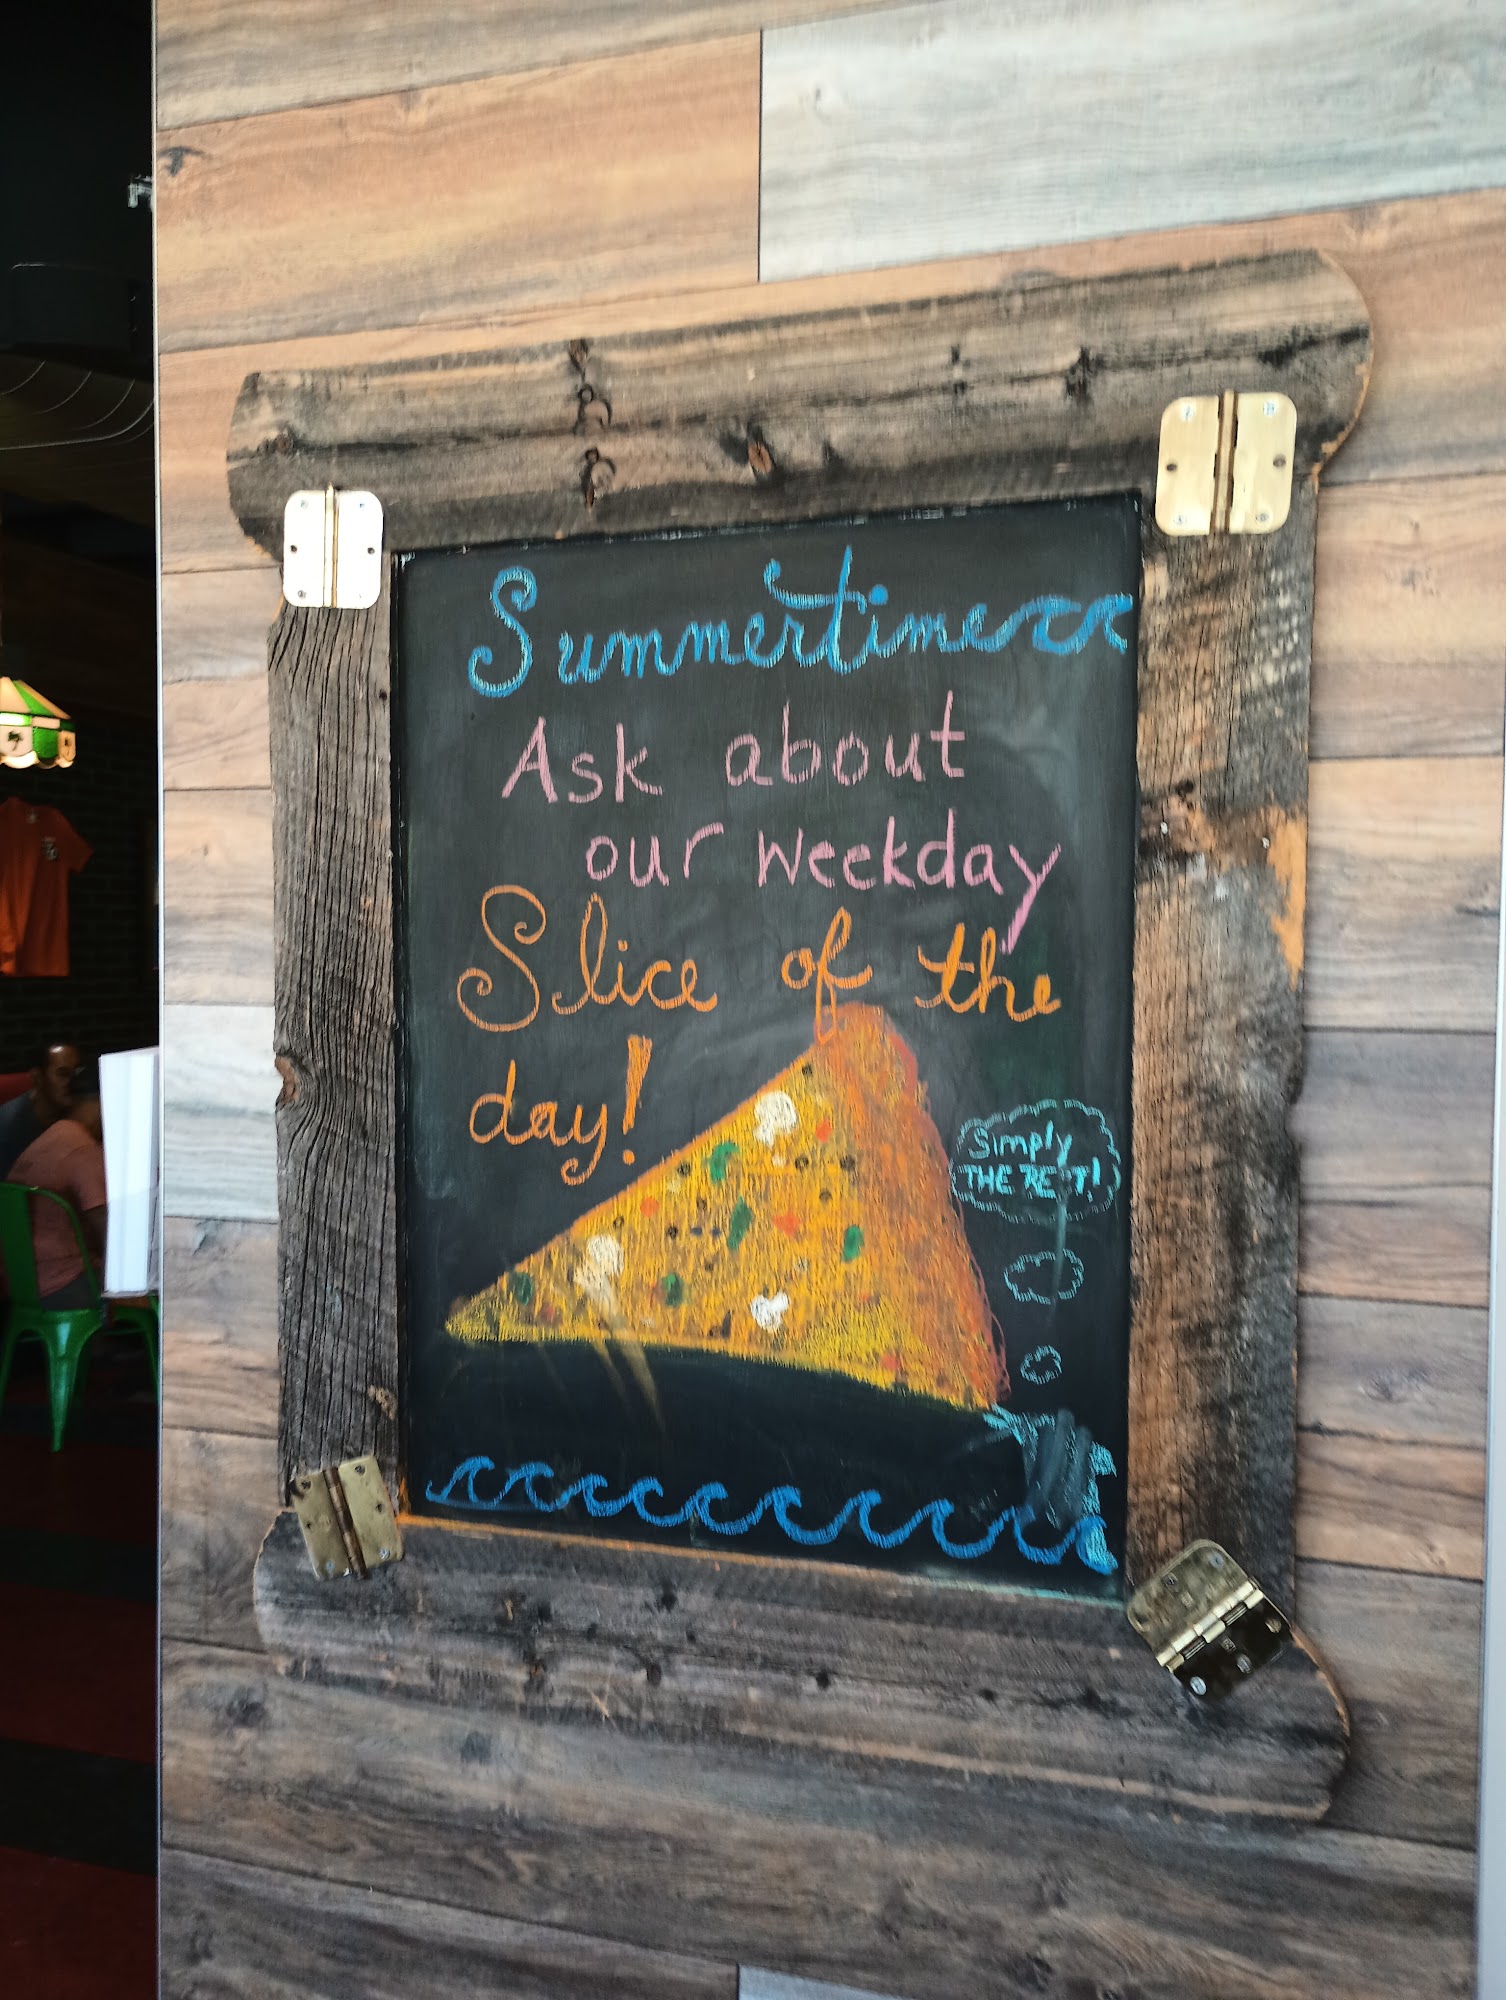 Summertime
Ask about
our weekday
Slice of the
day!
Simply
THE